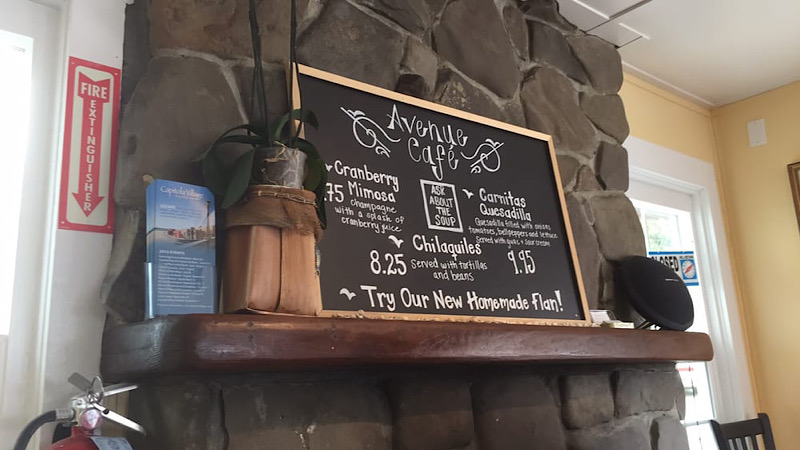 FIRE
EXTINGUISHER
Capitola Village
Avenue
Café
Cranberry
.75 Mimosa
champagne
with a splash of
cranberry juice
ASK
ABOUT
THE
SOUP
Carnitas
Quesadilla
Quesadilla filled with onions
tomatoes, bellpeppers and lettuce.
Served with guac, + sour cream
9.95
Chilaquiles
8.25 Served with tortillas
and beans
Try Our New Homemade Flan!